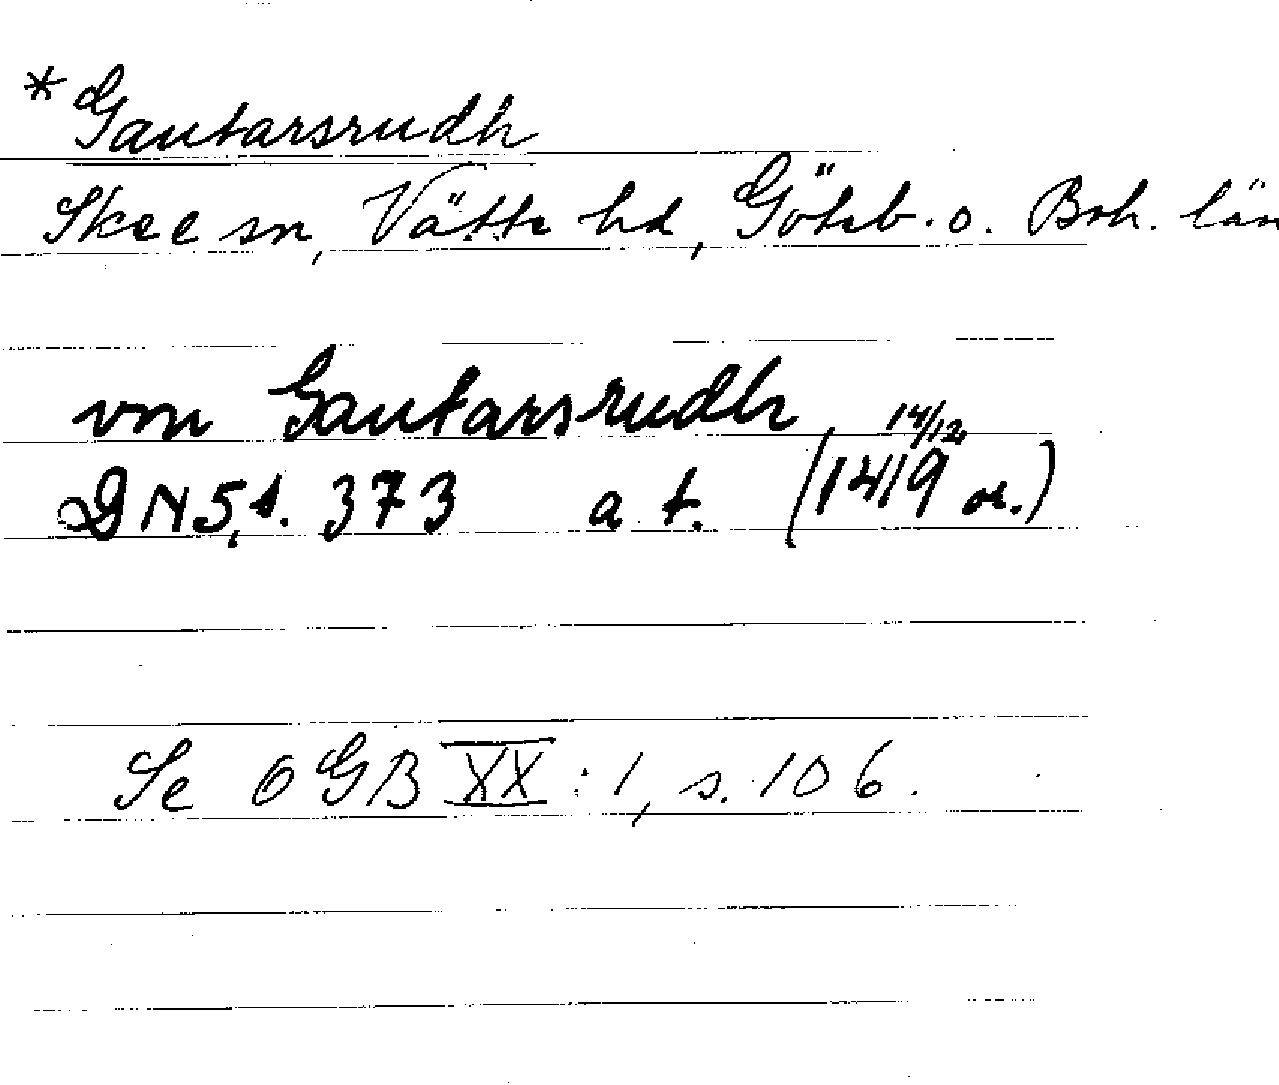 *Gautarsrudh
Skee sn, Vätte hd, Göteb. o. Boh. län
von Gautarsrudh,
DN 5, s. 373 a. t. (14/12 1419 or.)
Se OGB XX:1, s. 106.